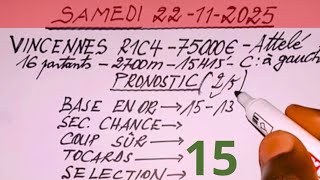 SAMEDI 22-11-2025
VINCENNES R1C4-75000€-Attelé
16 partants-2700m-15H15-C: à gauch
PRONOSTIC (2/5)
BASE EN OR → 15-13
SEC. CHANCE →
COUP SÛR →
TOCARDS →
SELECTION →
15